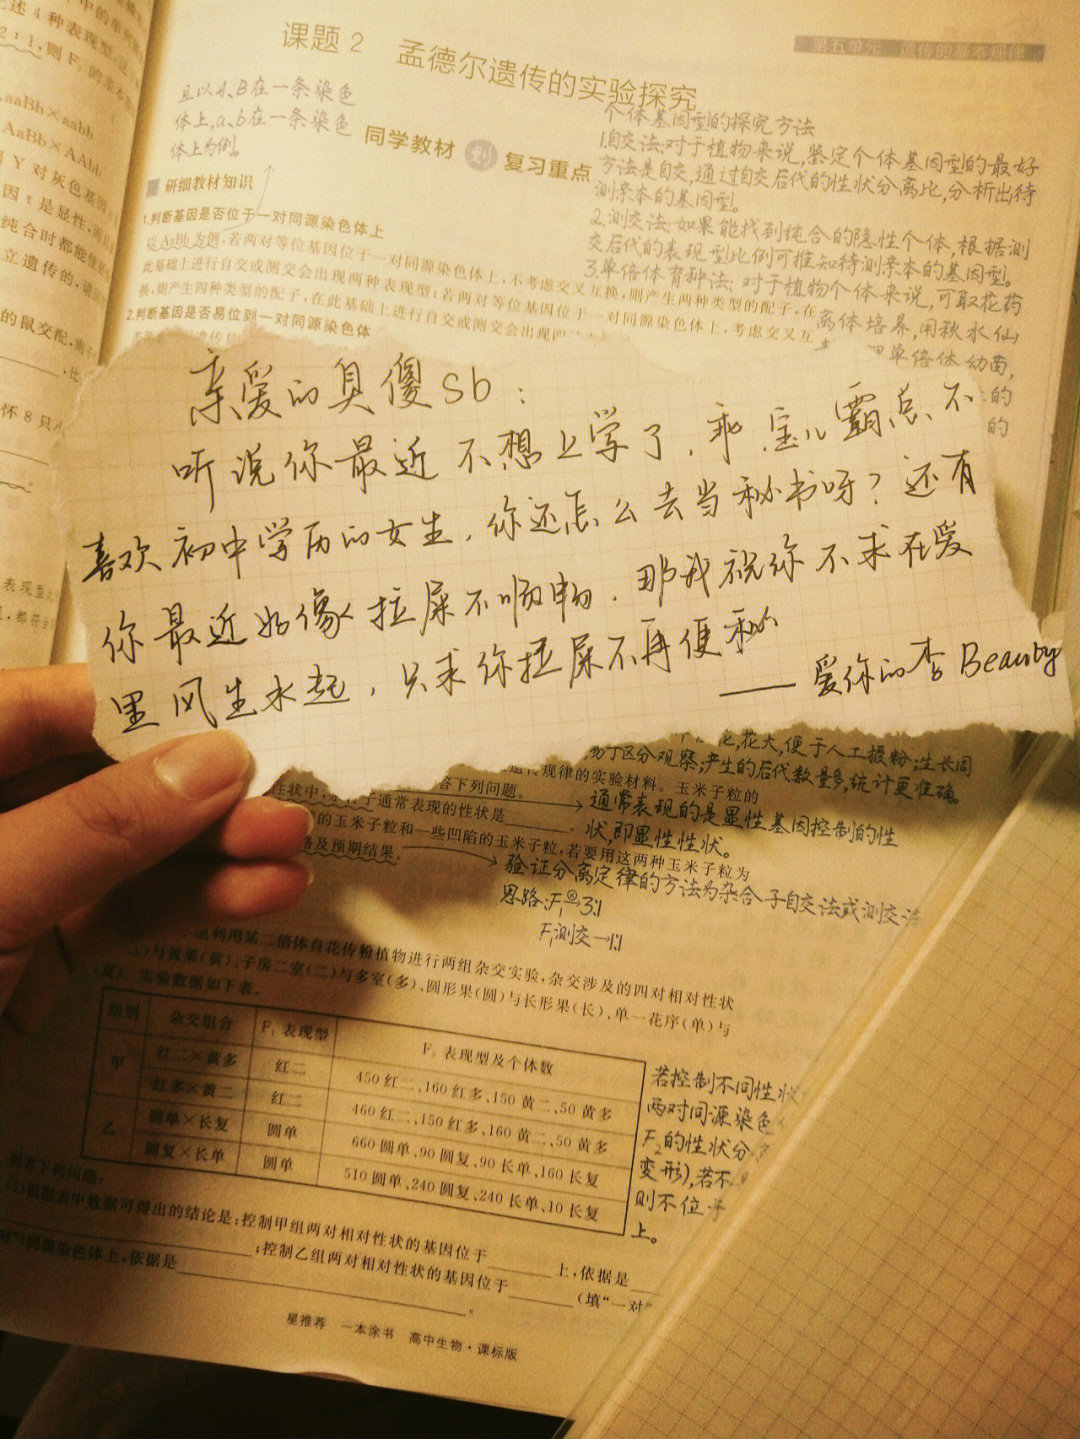 述4种表现型
2:1,则F
aaBb×aabb
AaBb×AAbb
Y对灰色基因
因t是显性
纯合时都能使
立遗传的
的鼠交配,则子
怀8只
第五单元 遗传的基本规律
课题2 孟德尔遗传的实验探究
且以A、B在一条染色
体上,a、b在一条染色
体上为例。
同学教材 划 复习重点
研细教材知识
1.判断基因是否位于一对同源染色体上
以AaBb为例,若两对等位基因位于一对同源染色体上,不考虑交叉互换,则产生两种类型的配子,在
此基础上进行自交或测交会出现两种表现型;若两对等位基因位于一对同源染色体上,考虑交叉互
换,则产生四种类型的配子,在此基础上进行自交或测交会出现四
2.判断基因是否易位到一对同源染色体
个体基因型的探究方法
1.自交法:对于植物来说,鉴定个体基因型的最好
方法是自交,通过自交后代的性状分离比,分析出待
测亲本的基因型。
2.测交法:如果能找到纯合的隐性个体,根据测
交后代的表现型比例可推知待测亲本的基因型。
3.单倍体育种法:对于植物个体来说,可取花药
离体培养,用秋水仙
单倍体幼苗,
的
的
亲爱的臭傻sb:
听说你最近不想上学了,乖,宝儿霸总不
喜欢初中学历的女生,你还怎么去当秘书呀?还有
你最近好像拉屎不顺畅,那我祝你不求在爱
里风生水起,只求你拉屎不再便秘
——爱你的李Beauty
表现型
花大,便于人工授粉;生长周
易于区分观察;产生的后代数量多,统计更准确。
遗传规律的实验材料。玉米子粒的
答下列问题。
性状中,
通常表现的性状是
。
通常表现的是显性基因控制的性
状,即显性性状。
的玉米子粒和一些凹陷的玉米子粒,若要用这两种玉米子粒为
及预期结果。
验证分离定律的方法为杂合子自交法或测交法
思路:F₁⊗→3:1
F₁测交→1:1
组利用某二倍体自花传粉植物进行两组杂交实验,杂交涉及的四对相对性状
与黄果(黄),子房二室(二)与多室(多),圆形果(圆)与长形果(长),单一花序(单)与
复)。实验数据如下表。
组别 杂交组合 F₁表现型 F₂表现型及个体数
甲 红二×黄多 红二 450红二、160红多、150黄二、50黄多
红多×黄二 红二 460红二、150红多、160黄二、50黄多
乙 圆单×长复 圆单 660圆单、90圆复、90长单、160长复
圆复×长单 圆单 510圆单、240圆复、240长单、10长复
若控制不同性状
两对同源染色
F₂的性状分
变形),若不
则不位于
上。
回答下列问题:
(1)根据表中数据可得出的结论是:控制甲组两对相对性状的基因位于 上,依据是
;控制乙组两对相对性状的基因位于 (填“一对”
同源染色体上,依据是 。
星推荐 一本涂书 高中生物·课标版